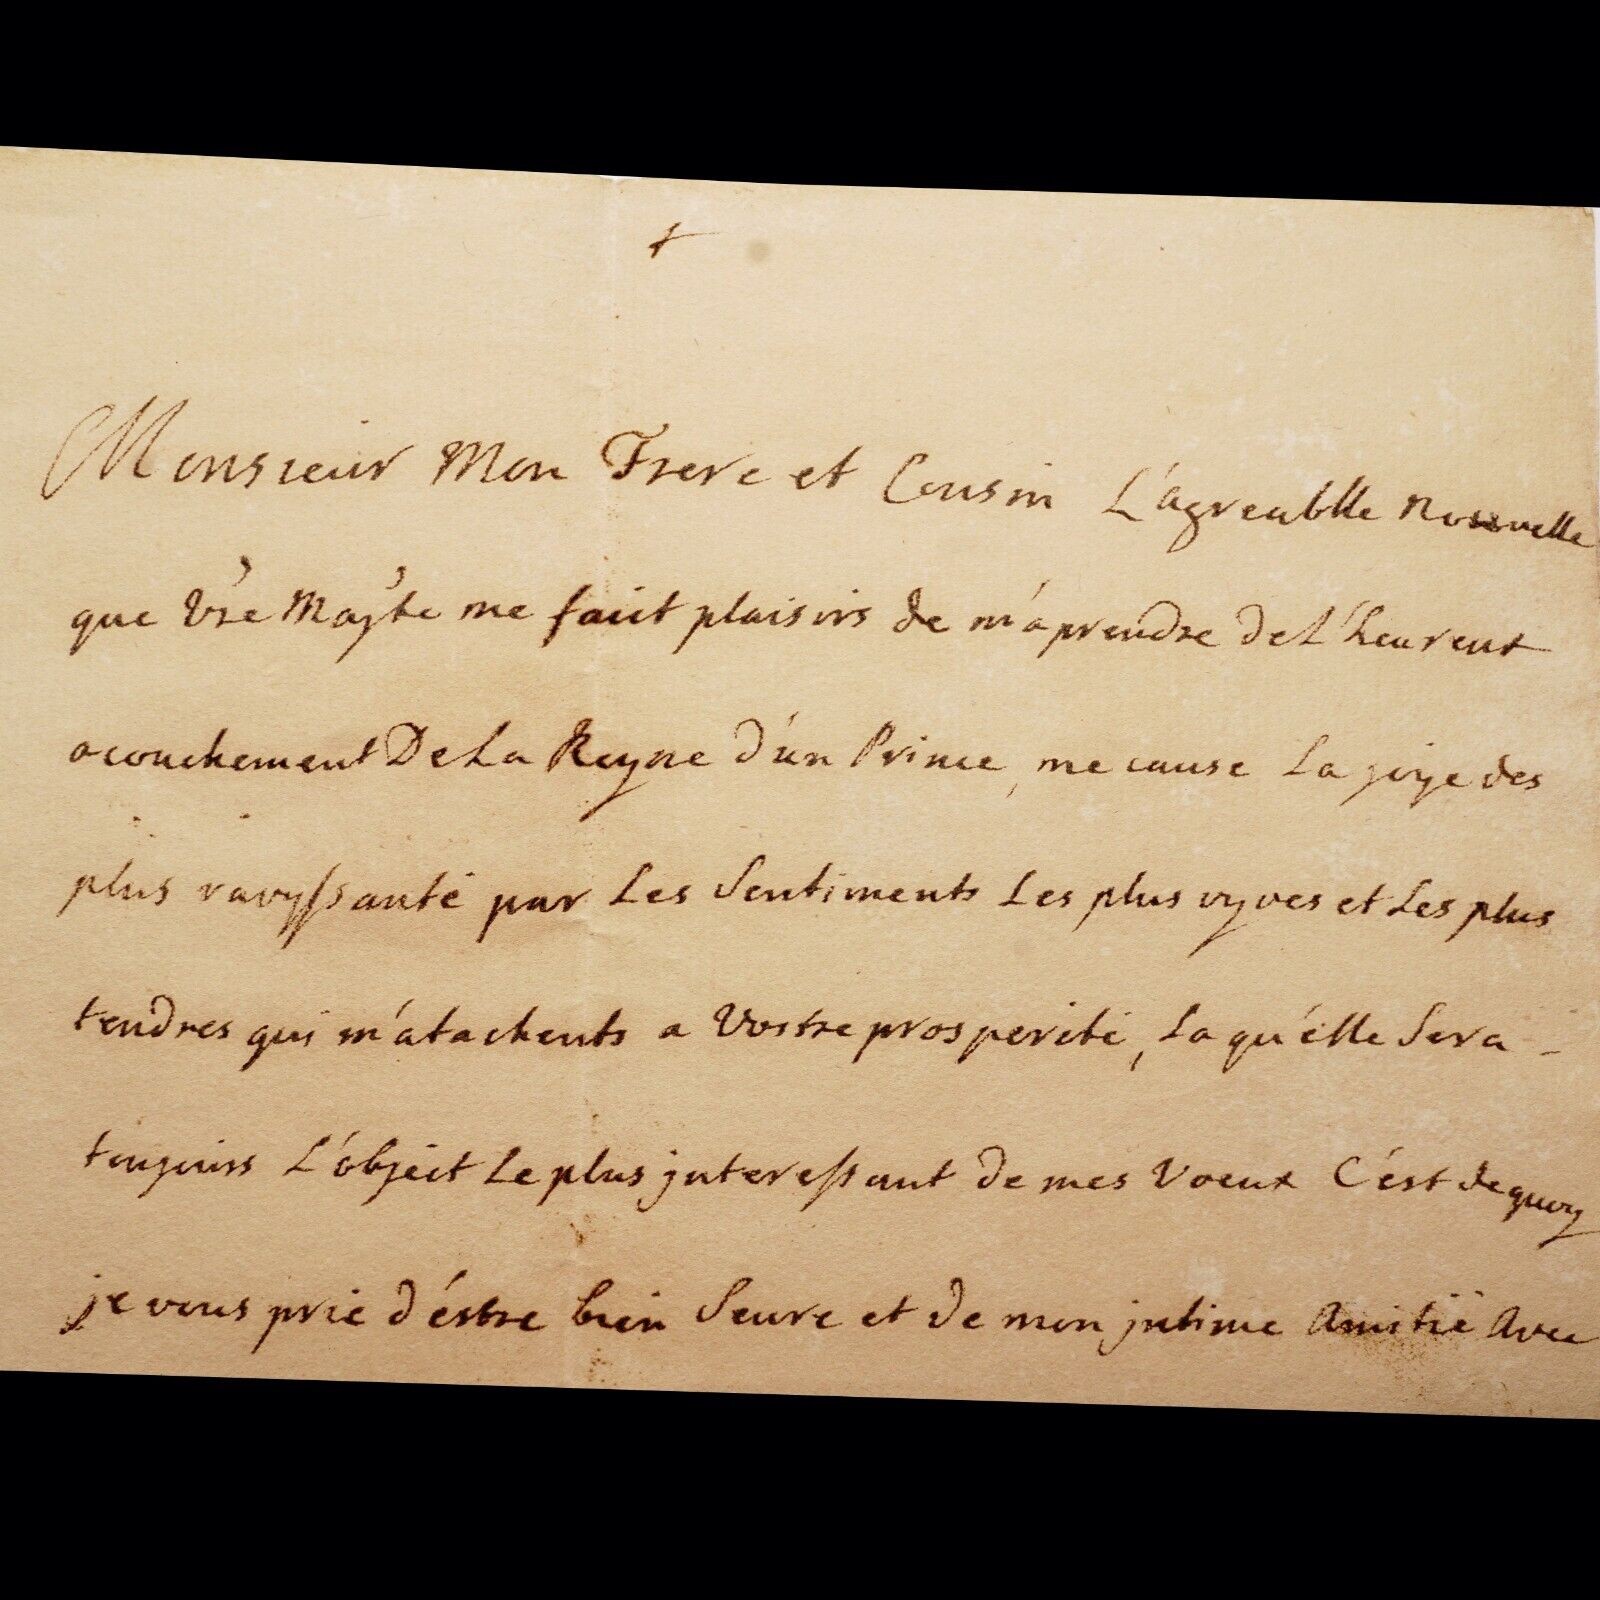 +
Monsieur Mon Frere et Cousin L'agreablle Nouvelle
que Vre Majte me faiit plaisirs de m'aprendre de L'heureux
acouchement De La Reyne d'un Prince, me cause La joye des
plus ravyssante par Les Sentiments Les plus vyves et Les plus
tendres qui m'atachents a Vostre prosperité, La qu'élle Sera -
toujouirs L'óbjéct Le plus jnteressant de mes Voeux C'ést de quoy
je vous prie d'éstre bien Seure et de mon jntime Amitié Avec